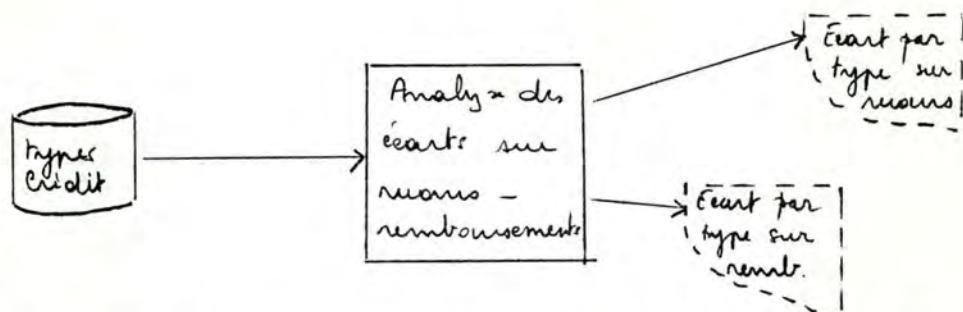 types
Crédit
Analyse des
écarts sur
remboursements
Écart par
type sur
Écart par
type sur
remb.